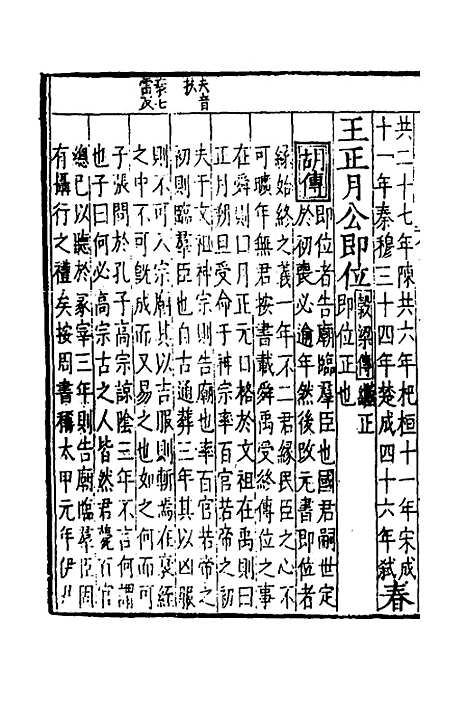 夫音
扶
衰七
雷反
共二十七年陳共六年杞桓十一年宋成
十一年秦穆三十四年楚成四十六年弑 春
王正月公即位 穀梁傳繼正
即位正也
胡傳 即位者告廟臨羣臣也國君嗣世定
於初喪必逾年然後改元書即位者
緣始終之義一年不二君緣民臣之心不
可曠年無君按書載舜禹受終傳位之事
在舜則曰月正元日格于文祖在禹則曰
正月朔旦受命于神宗率百官若帝之
初則臨羣臣也自古通葬三年其以凶服
夫于文祖神宗則告廟也率百官若帝之
則不可入宗廟其以吉服則斬焉在衰絰
之中不可既成而又易之也如之何而可
子張問於孔子高宗諒陰三年不言何謂
也子曰何必高宗古之人皆然君薨百官
總己以聽於冢宰三年則告廟臨羣臣固
有攝行之禮矣按周書稱太甲元年伊